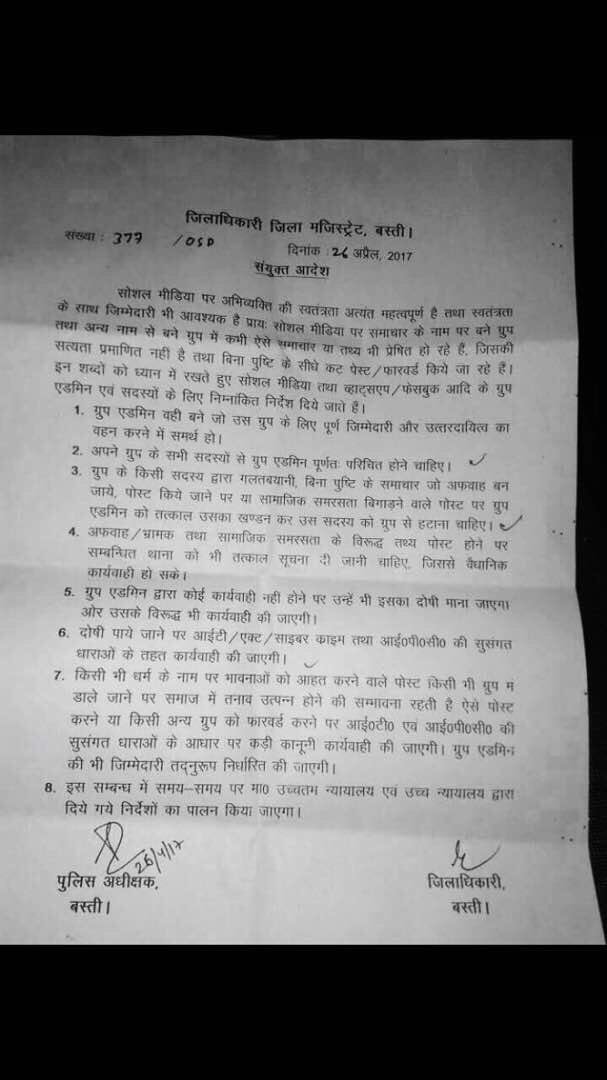 जिलाधिकारी जिला मजिस्ट्रेट, बस्ती।
संख्या : 377 /OSD
दिनांक : 26 अप्रैल, 2017
संयुक्त आदेश
सोशल मीडिया पर अभिव्यक्ति की स्वतंत्रता अत्यंत महत्वपूर्ण है तथा स्वतंत्रता
के साथ जिम्मेदारी भी आवश्यक है प्रायः सोशल मीडिया पर समाचार के नाम पर बने ग्रुप
तथा अन्य नाम से बने ग्रुप में कभी ऐसे समाचार या तथ्य भी प्रेषित हो रहे हैं, जिसकी
सत्यता प्रमाणित नहीं है तथा बिना पुष्टि के सीधे कट पेस्ट/फारवर्ड किये जा रहे हैं।
इन शब्दों को ध्यान में रखते हुए सोशल मीडिया तथा व्हाट्सएप/फेसबुक आदि के ग्रुप
एडमिन एवं सदस्यों के लिए निम्नांकित निर्देश दिये जाते है।
1. ग्रुप एडमिन वही बने जो उस ग्रुप के लिए पूर्ण जिम्मेदारी और उत्तरदायित्व का
वहन करने में समर्थ हो।
2. अपने ग्रुप के सभी सदस्यों से ग्रुप एडमिन पूर्णतः परिचित होने चाहिए।
3. ग्रुप के किसी सदस्य द्वारा गलतबयानी, बिना पुष्टि के समाचार जो अफवाह बन
जाये, पोस्ट किये जाने पर या सामाजिक समरसता बिगाड़ने वाले पोस्ट पर ग्रुप
एडमिन को तत्काल उसका खण्डन कर उस सदस्य को ग्रुप से हटाना चाहिए।
4. अफवाह/भ्रामक तथा सामाजिक समरसता के विरूद्ध तथ्य पोस्ट होने पर
सम्बन्धित थाना को भी तत्काल सूचना दी जानी चाहिए, जिससे वैधानिक
कार्यवाही हो सके।
5. ग्रुप एडमिन द्वारा कोई कार्यवाही नही होने पर उन्हें भी इसका दोषी माना जाएगा
ओर उसके विरूद्ध भी कार्यवाही की जाएगी।
6. दोषी पाये जाने पर आईटी/एक्ट/साइबर काइम तथा आई0पी0सी0 की सुसंगत
धाराओं के तहत कार्यवाही की जाएगी।
7. किसी भी धर्म के नाम पर भावनाओं को आहत करने वाले पोस्ट किसी भी ग्रुप म
डाले जाने पर समाज में तनाव उत्पन्न होने की सम्मावना रहती है ऐसे पोस्ट
करने या किसी अन्य ग्रुप को फारवर्ड करने पर आई0टी0 एवं आई0पी0सी0 की
सुसंगत धाराओं के आधार पर कड़ी कानूनी कार्यवाही की जाएगी। ग्रुप एडमिन
की भी जिम्मेदारी तद्नुरूप निर्धारित की जाएगी।
8. इस सम्बन्ध में समय-समय पर मा0 उच्चतम न्यायालय एवं उच्च न्यायालय द्वारा
दिये गये निर्देशों का पालन किया जाएगा।
26/4/17
पुलिस अधीक्षक,
बस्ती।
जिलाधिकारी,
बस्ती।